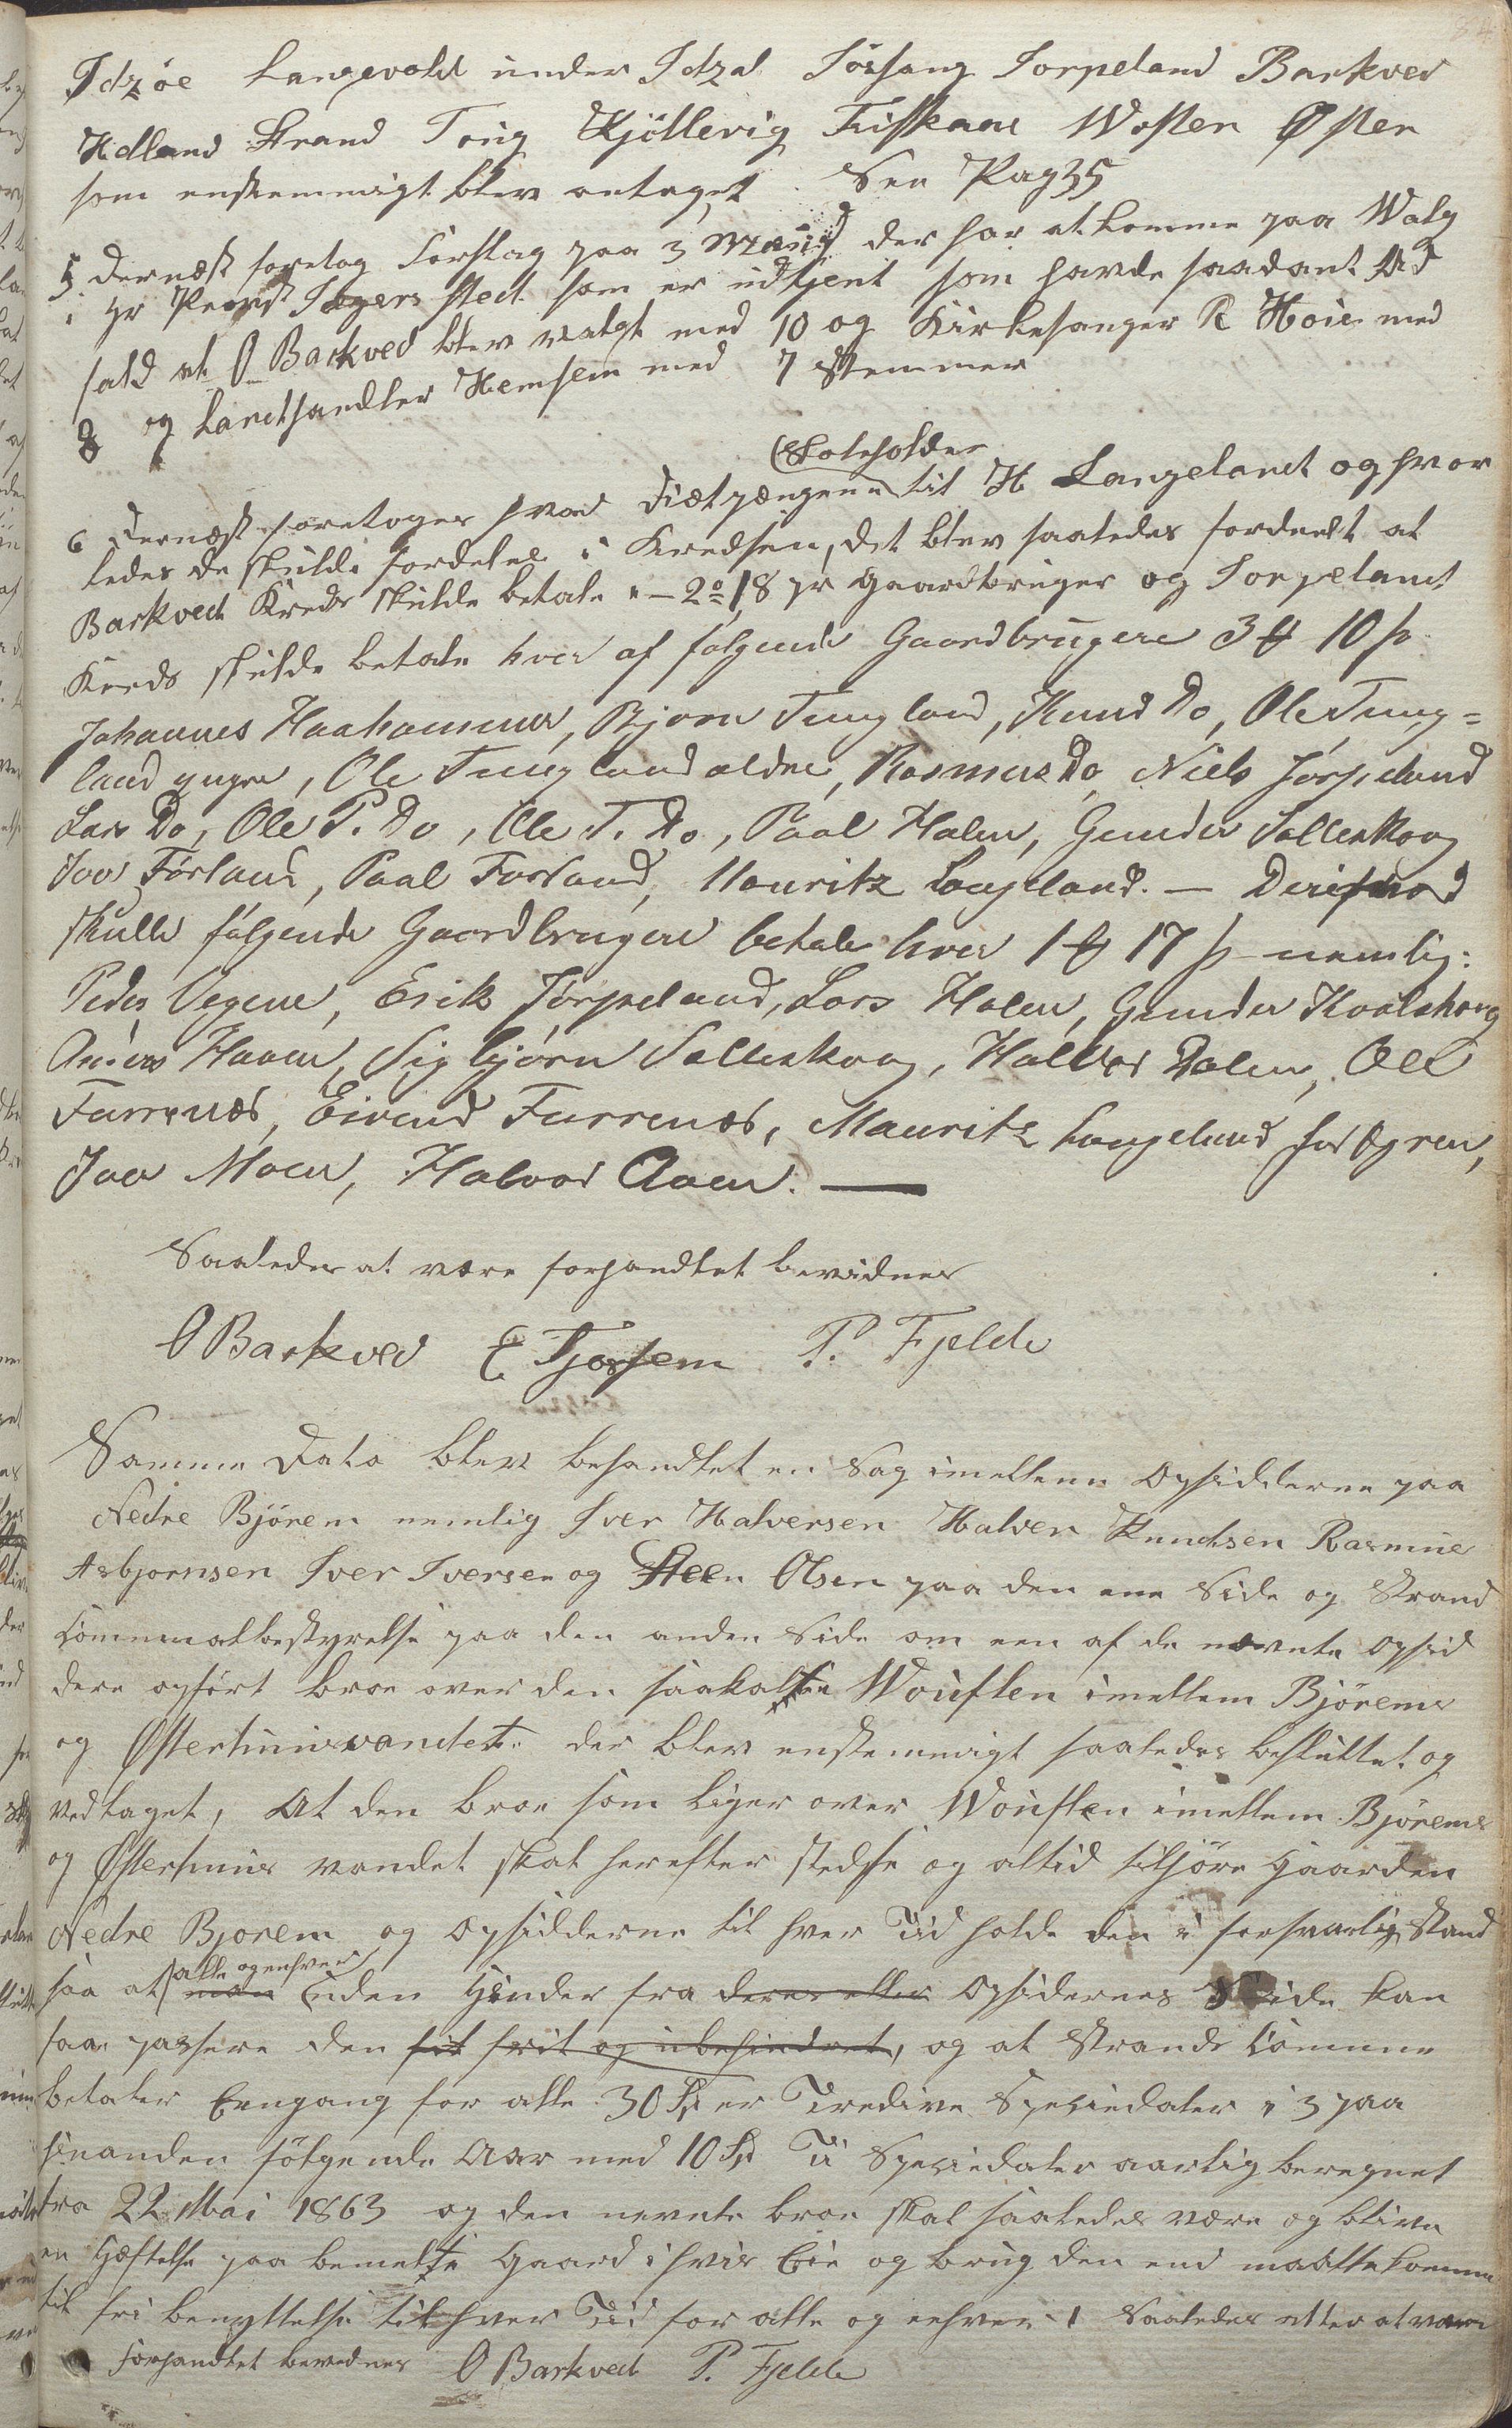 Idzöe Langevold under Idzal Jössang Jorpeland Barkved
Holland Strand Toug Kjöllevig Fiskaae Wosten Østen
som enstemmigt blev antaget. See Pag 35
5 dernæst foretog Forslag paa 3 Mænd der har at komme paa Walg
i Hr Provst Jagers sted som er udtjent som havde saadant Ud
fald at O Barkved blev valgt med 10 og Kirkesanger R Hoie med
8 og Landhandler Hemsem med 7 Stemmer
Skoleholder
6 Dernæst foretoges hvad Diætpængene til H Langeland og hvor
ledes de skulde fordeles i Kredsen, det blev saaledes fordeelt at
Barkved Kreds skulde betale "– 2 o 18 pr Gaardbruger og Jorpeland
Kreds skulde betale hver af følgende Gaardbrugere 3 ₰ 10 ß
Johannes Haahammer, Bjørn Tungland, Knud Do, Ole Tung=
land yngre, Ole Tungland ældre, Rasmus Do, Niels Jørpeland
Lars Do, Ole P. Do, Ole T. Do, Paal Holen, Gunder Solleskoog
Ivar Førland, Paal Forland, Mouritz Langeland. — Derimod
skulle følgende Gaardbrugere betale hver 1 ₰ 17 ß nemlig:
Peder Vegene, Erik Jørpeland, Lars Holen, Gunder Kvalshoug
Anders Haaen, Sigbjørn Solleskoog, Halvor Dalen, Ole
Furrenæs, Eivind Furrenæs, Mauritz Langeland for Øgren,
Ivar Moen, Halvor Aaen. —
Saaledes at være forhandlet bevidner
O Barkved E Tjossem P. Fjelde
Samme Dato blev behandlet en Sag imellem Opsidderne paa
Nedre Bjørem nemlig Iver Halversen Halver Knudsen Rasmus
Asbjornsen Iver Iversen og Steen Olsen paa den ene Side og Strand
Communalbestyrelse paa den anden Side om een af de nævnte Opsid
dere opført broe over den saakaldte Wouflen imellem Bjørems
og Østerhuusvandet. der blev enstemmigt saaledes besluttet og
vedtaget, At den broe som liger over Wouflen imellem Bjørems
og Østerhuus vandet skal herefter stedse og altid tilhøre Gaarden
Nedre Bjorem og Opsidderne til hver Tid holde den i forsvarlig Stand
alle og enhver
saa at man uden Hinder fra deres eller Opsidernes Side kan
faae passere den fit frit og ubehindret, og at Strands Comune
betaler Eengang for alle 30 Spd er Tredive Speciedaler i 3 paa
hinanden følgende Aar med 10 Spd Ti Speciedaler aarlig beregnet
fra 22 Mai 1863 og den nevnte broe skal saaledes være og blive
en Hæftelse paa bemeldte Gaard i hvis Eie og brug den end maatte komme
til fri benyttelse til hver Tid for alle og enhver. Saaledes atter at være
forhandlet bevidner O Barkved P. Fjelde